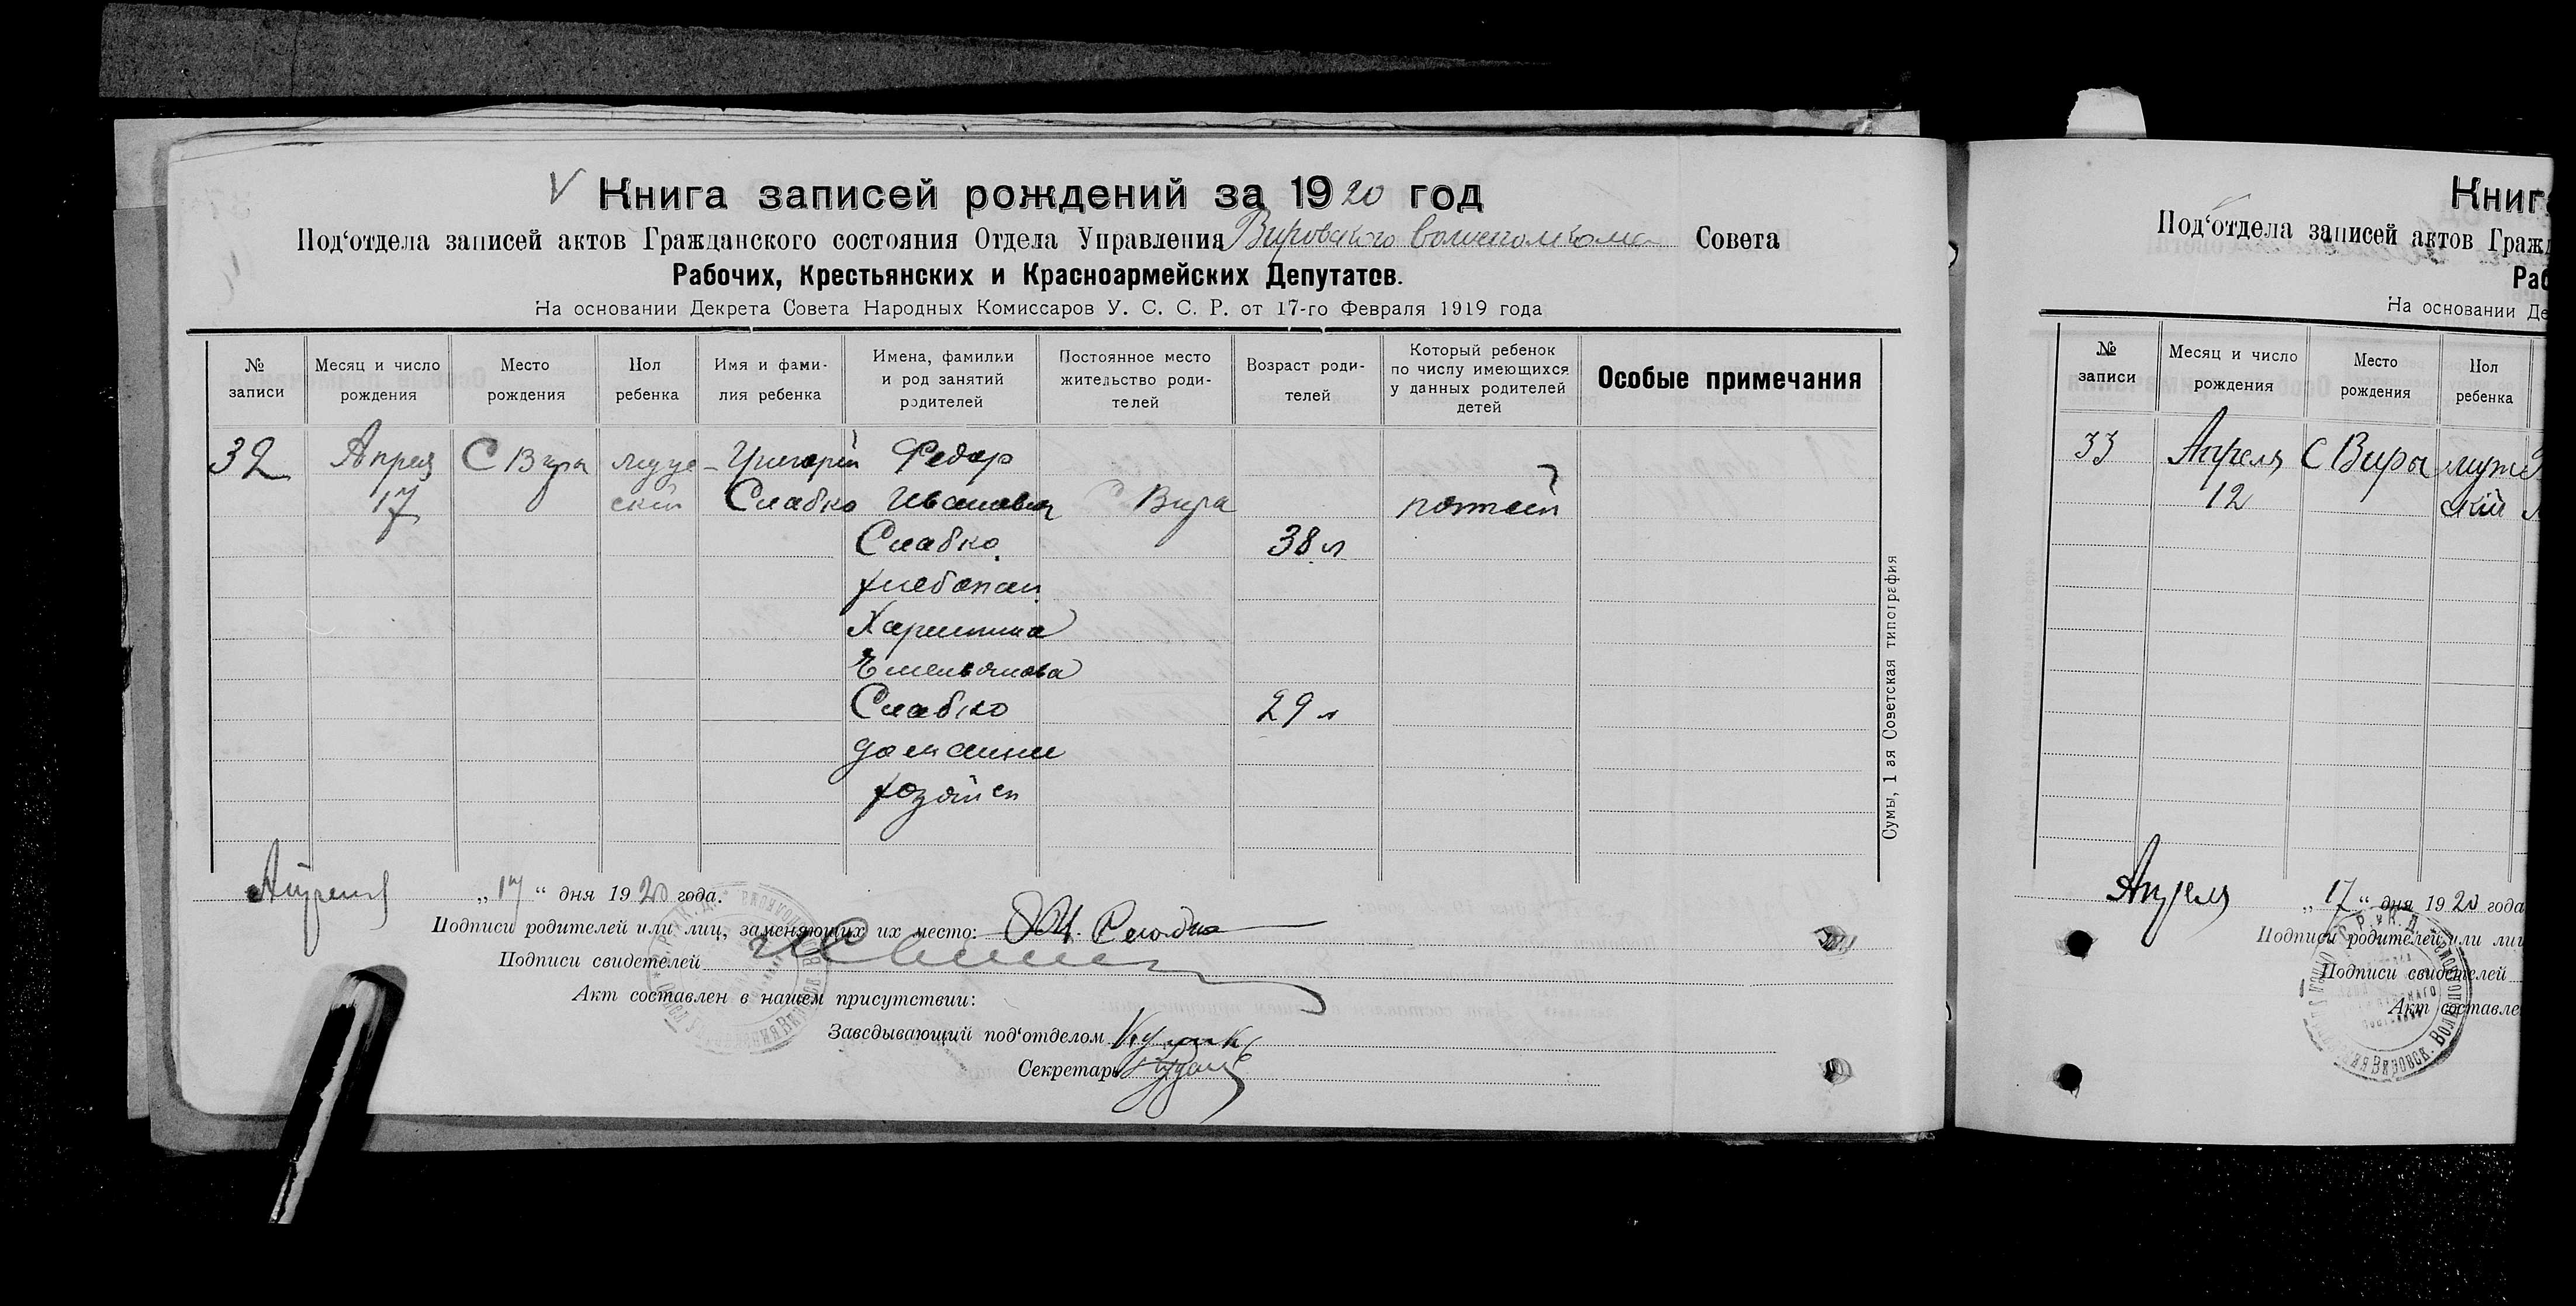 Книга записей рождений за 1920 год
Под‘отдела записей актов Гражданского состояния Отдела Управления Вировского волисполкома Совета
Рабочих, Крестьянских и Красноармейских Депутатов.
На основании Декрета Совета Народных Комиссаров У. С. С. Р. от 17-го Февраля 1919 года
№ записи
Месяц и число рождения
Место рождения
Пол ребенка
Имя и фами-
лия ребенка
Имена, фамилии
и род занятий
родителей
Постоянное место
жительство роди-
телей
Возраст роди-
телей
Который ребенок
по числу имеющихся
у данных родителей
детей
Особые примечания
32 Апреля С Виры муже- Григорий Федор
17 ский Слабко Иванович С Вира пятый
Слабко 38 л
хлебопаш
Харитина
Емельянова
Слабко 29 л
домашни
хозяйст
Апреля „17“ дня 1920 года.
Подписи родителей или лиц, заменяющих их место:
Подписи свидетелей
Акт составлен в нашем присутствии:
Заведывающий под‘отделом
Секретарь
Сумы, 1 ая Советская типография
Книг
Под‘отдела записей актов Гражд
Раб
На основании Де
№ записи
Месяц и число
рождения
Место
рождения
Пол
ребенка
33 Апреля С Виры муж
12 ский
Апреля „17“ дня 1920 года
Подписи родителей или лиц
Подписи свидетелей
Акт составле